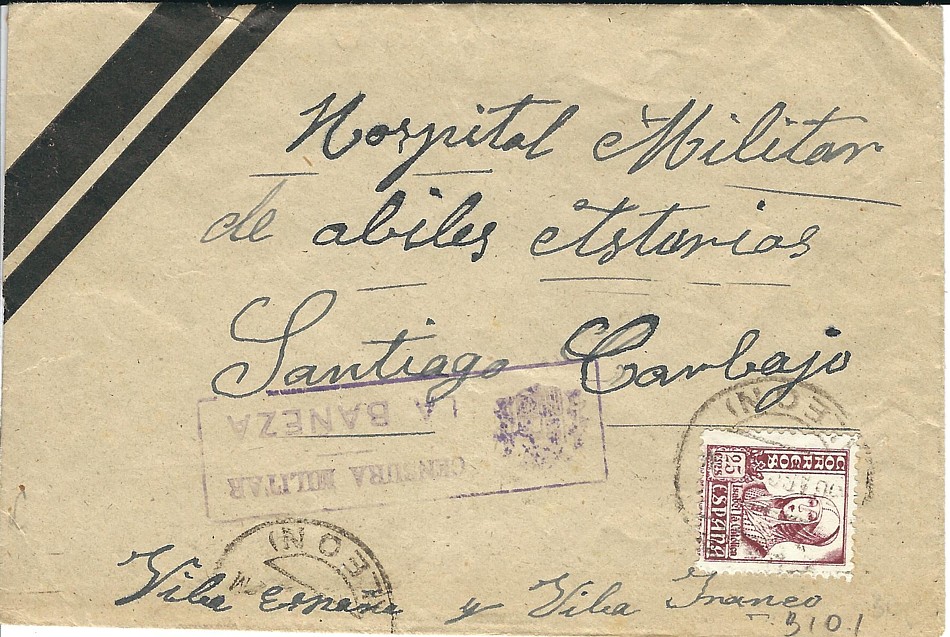 Hospital Militar
de abiles Asturias
Santiago Carbajo
CENSURA MILITAR
LA BAÑEZA
LEON
CORREOS
25
CTS
Isabel la Católica
ESPAÑA
LEON
Viba España y Viba Franco
B101